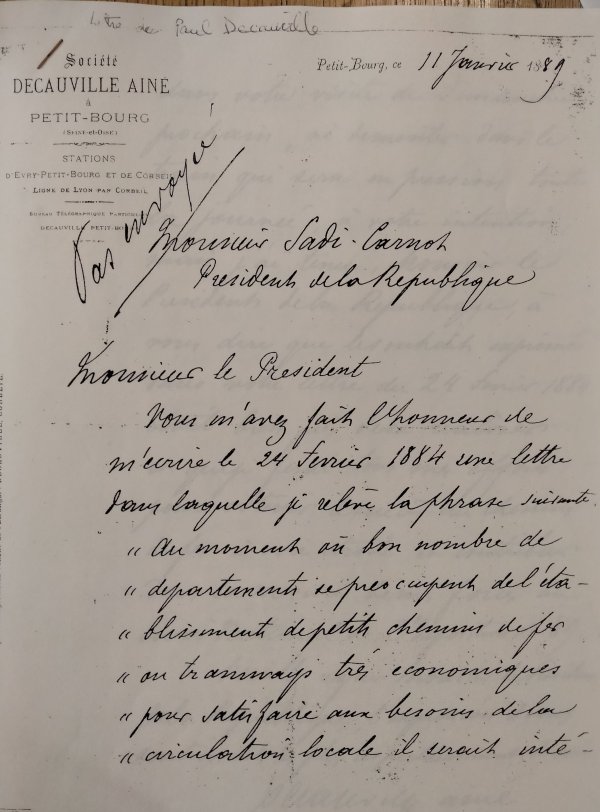 lettre de Paul Decauville
Société
DECAUVILLE AINÉ
à
PETIT-BOURG
(SEINE-et-OISE)
STATIONS
D'EVRY-PETIT-BOURG ET DE CORBEIL
LIGNE DE LYON PAR CORBEIL
BUREAU TÉLÉGRAPHIQUE PARTICULIER
DECAUVILLE PETIT-BOURG
Petit-Bourg, ce 11 Janvier 1889
Pas envoyé
Monsieur Sadi-Carnot
President de la Republique
Monsieur le President
Vous m'avez fait l'honneur de
m'ecrire le 24 Fevrier 1884 une lettre
dans laquelle je relève la phrase suivante
" Au moment où bon nombre de
" departements se preoccupent de l'éta-
" blissement de petits chemins de fer
" ou tramways très economiques
" pour satisfaire aux besoins de la
" circulation locale il serait inté-